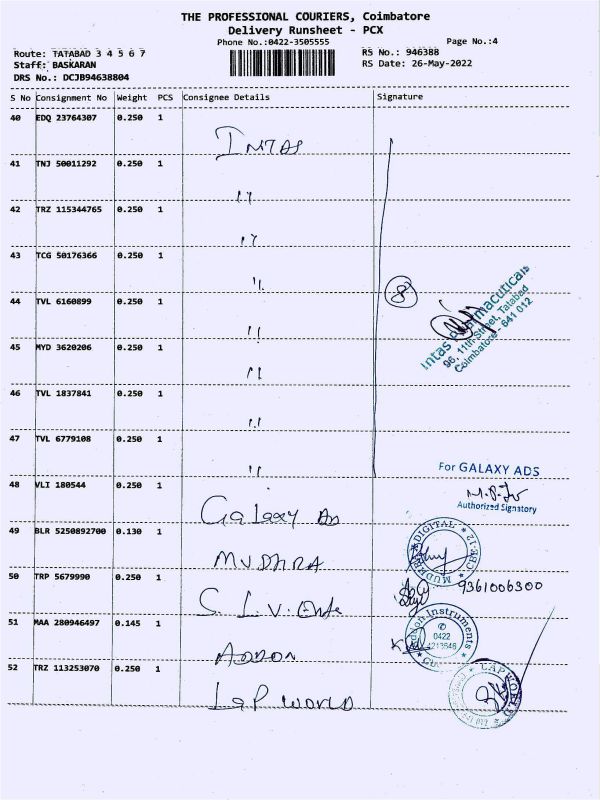 THE PROFESSIONAL COURIERS, Coimbatore
Delivery Runsheet - PCX
Phone No.:0422-3505555 Page No.:4
Route: TATABAD 3 4 5 6 7 RS No.: 946388
Staff: BASKARAN RS Date: 26-May-2022
DRS No.: DCJB94638804
S No Consignment No Weight PCS Consignee Details Signature
40 EDQ 23764307 0.250 1 INTAS
41 TNJ 50011292 0.250 1 "
42 TRZ 115344765 0.250 1 "
43 TCG 50176366 0.250 1 "
8
44 TVL 6160899 0.250 1 "
Intas Pharmaceuticals
96, 11th Street, Tatabad
Coimbatore - 641 012
45 MYD 3620206 0.250 1 "
46 TVL 1837841 0.250 1 "
47 TVL 6779108 0.250 1 "
For GALAXY ADS
48 VLI 180544 0.250 1 Galaxy Ads
Authorized Signatory
49 BLR 5250892700 0.130 1 MUDHRA
DIGITAL
50 TRP 5679990 0.250 1 S. L. V. Ente
9361006300
51 MAA 280946497 0.145 1 ADDON
Addon Instruments
0422
52 TRZ 113253070 0.250 1 LAP WORLD
LAP WORLD